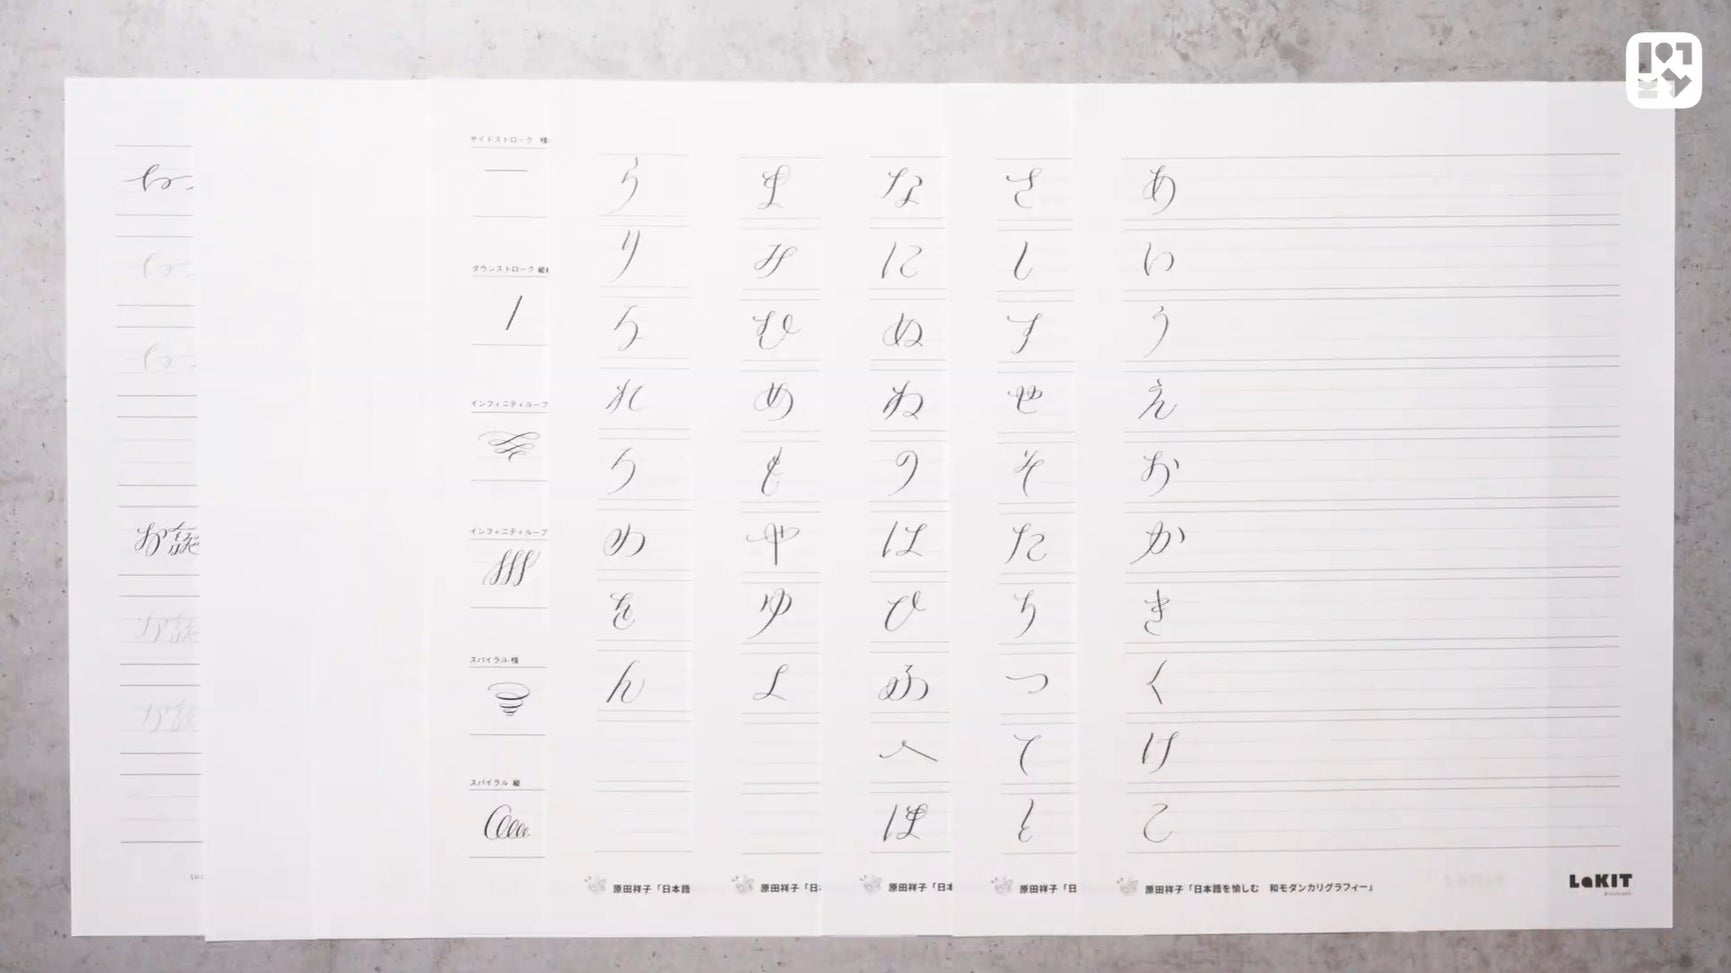 サイドストローク 横
ダウンストローク 縦
インフィニティループ
インフィニティループ
スパイラル 横
スパイラル 縦
お
お
ら
り
る
れ
ろ
わ
を
ん
原田祥子「日本語
ま
み
む
め
も
や
ゆ
よ
原田祥子「日
な
に
ぬ
ね
の
は
ひ
ふ
へ
ほ
原田祥子「日本
さ
し
す
せ
そ
た
ち
つ
て
と
原田祥子「日
あ
い
う
え
お
か
き
く
け
こ
原田祥子「日本語を愉しむ 和モダンカリグラフィー」
LaKIT